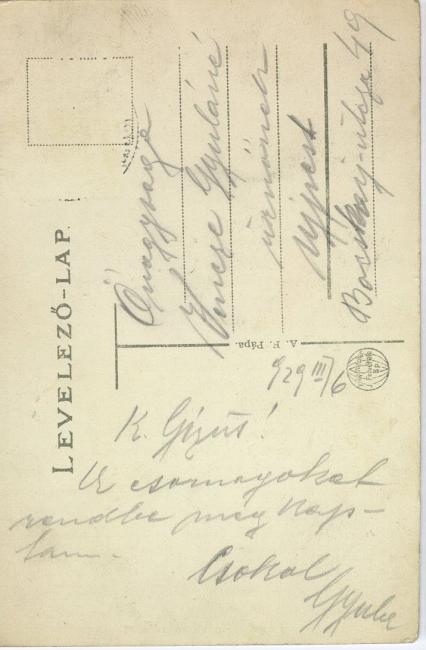 LEVELEZŐ-LAP.
Őnagysága
Vincze Gyuláné
úrnőnek
Ujpest
Bocskay-utcza 49
A. F. Pápa.
929 III/6
K. Gizus!
A csomagokat
rendbe meg kap-
tam.
Csokol
Gyula